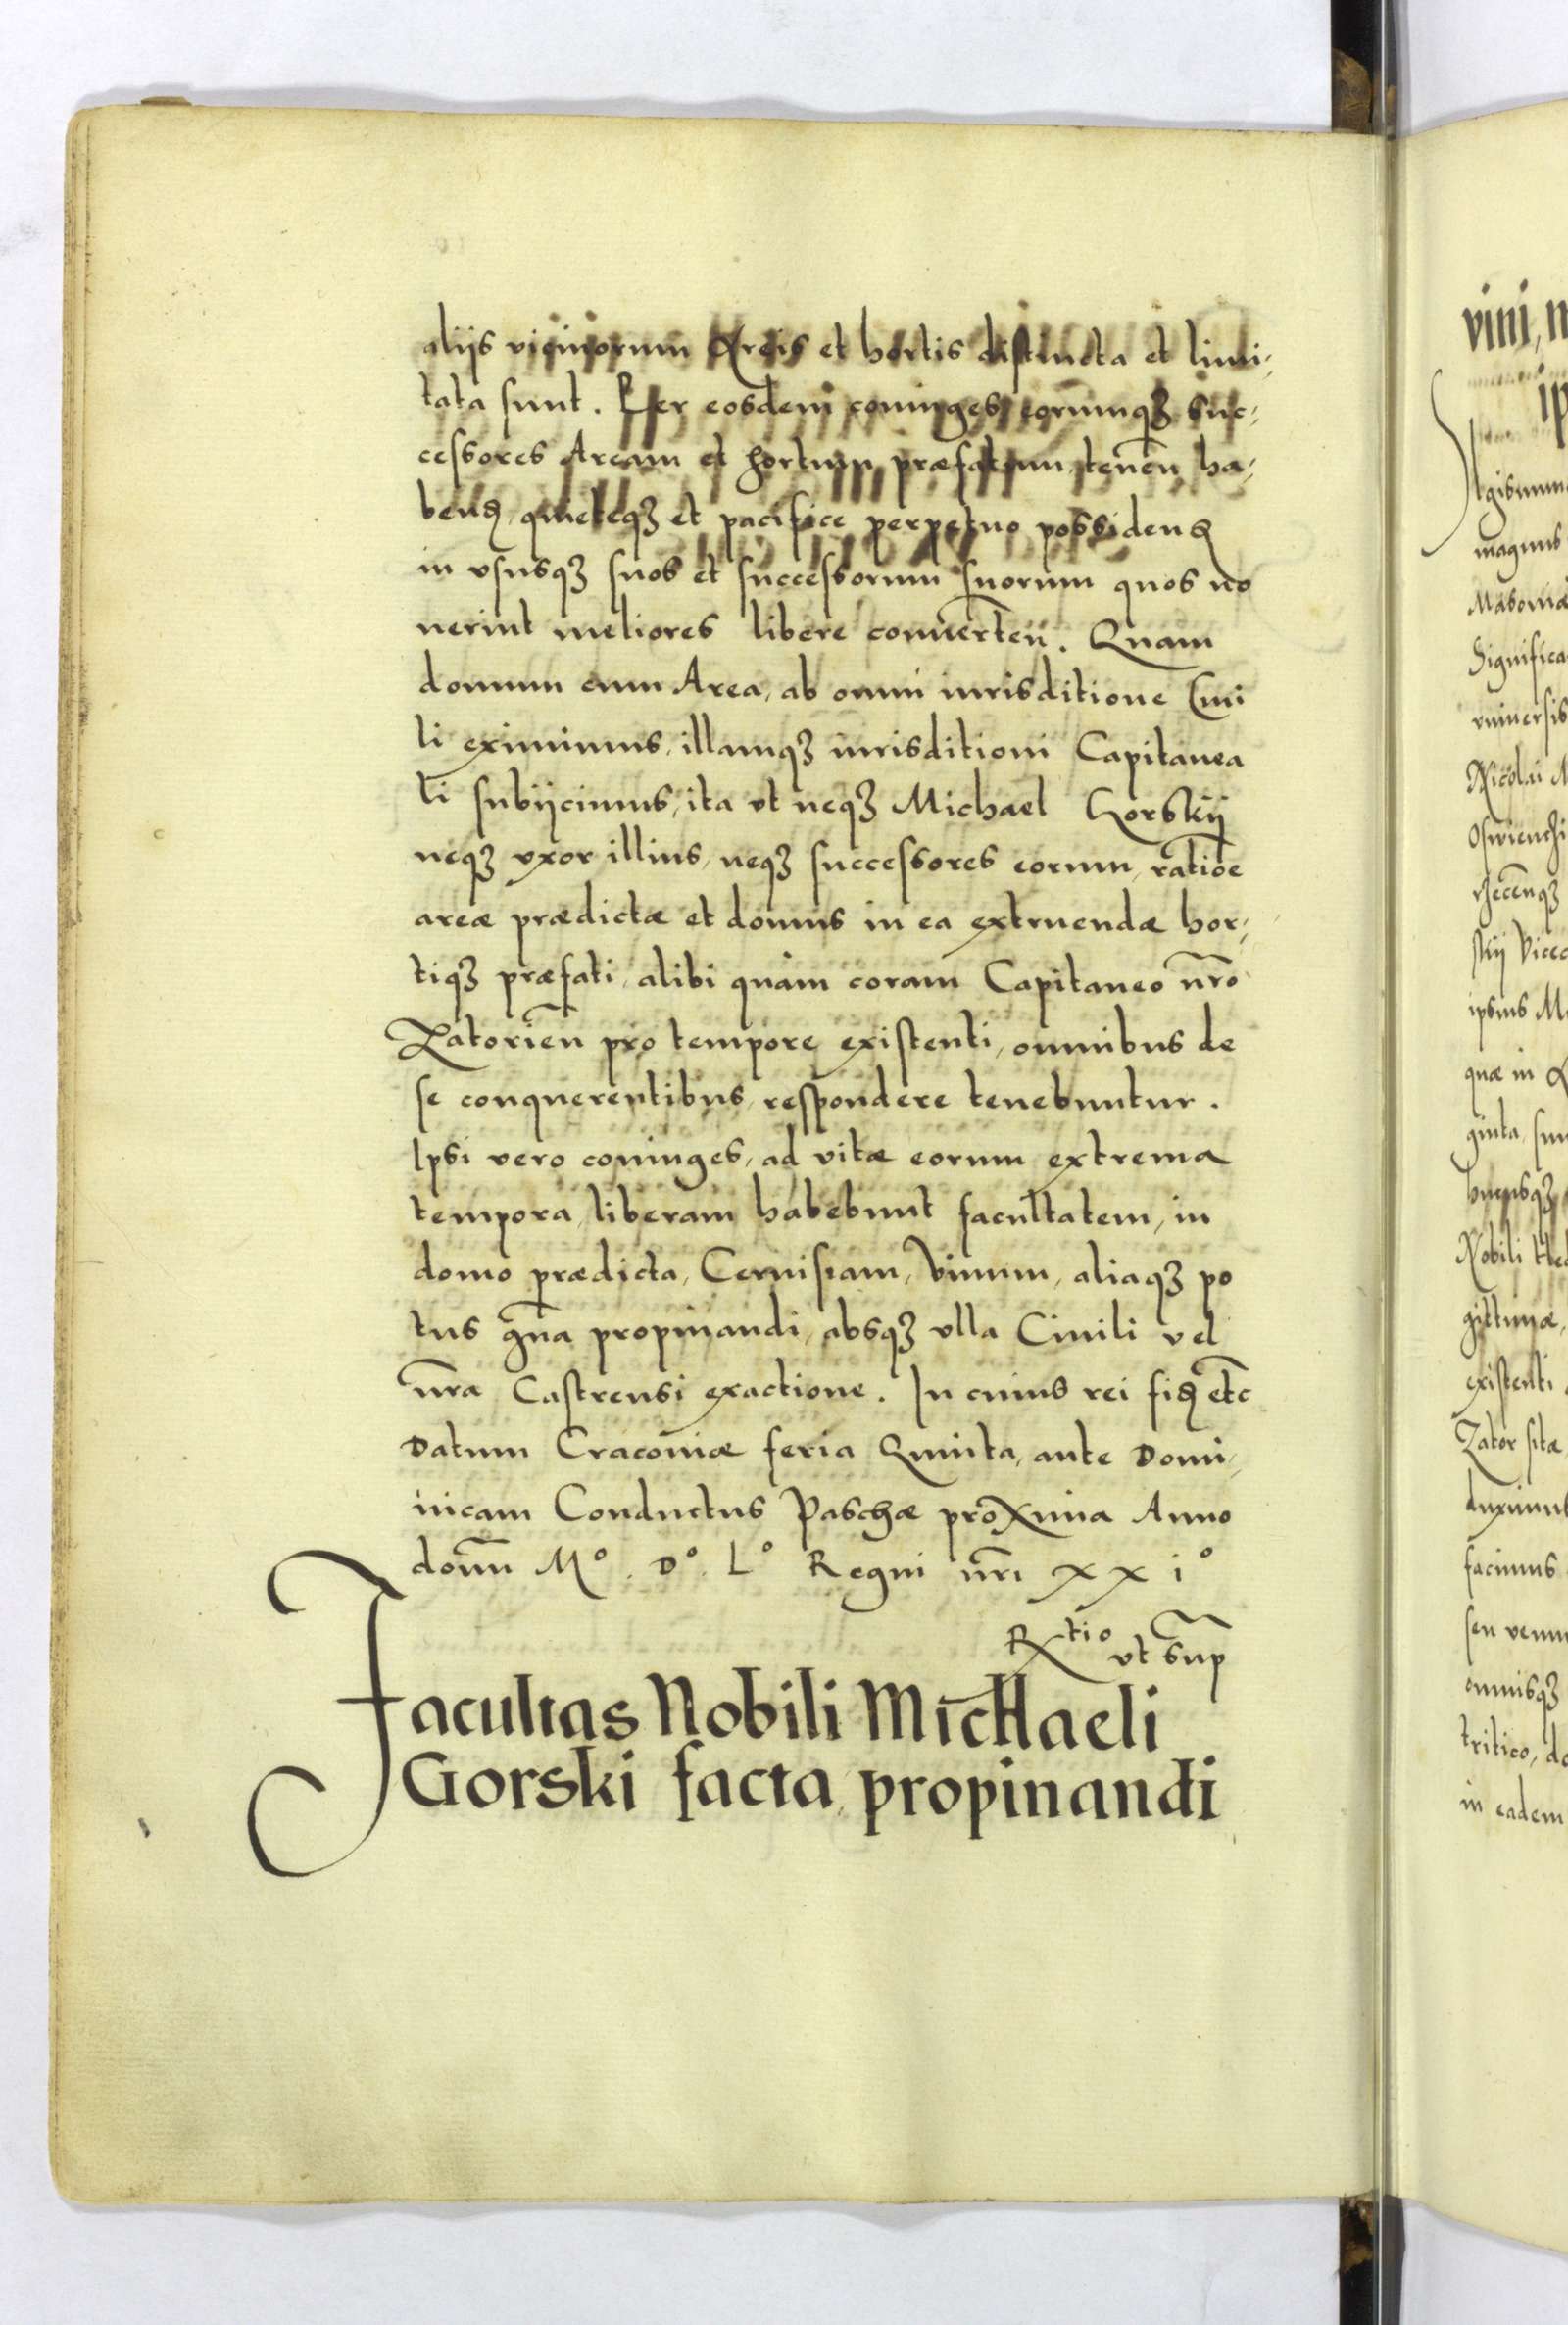 aliis vicinorum Areis et hortis distincta et limi,
tata sunt. Per eosdem coniuges eorumqꝫ suc,
cessores Aream et hortum præfatum tenen̄, ha,
bend̨, quieteqꝫ et pacifice perpetuo possidend̨
in vsusqꝫ suos et successorum suorum quos no
uerint meliores libere conuerten̄. Quam
domum cum Area, ab omni iurisditione Ciui
li eximimus, illamqꝫ iurisditioni Capitanea
li subijcimus, ita vt neqꝫ Michael Gorskij
neqꝫ vxor illius, neqꝫ successores eorum, ratiōe
areæ prædictæ et domus in ea extruendæ hor,
tiqꝫ præfati, alibi quàm coram Capitaneo nr̄o
Zatorień pro tempore existenti, omnibus de
se conquerentibus, respondere tenebuntur.
Ipsi vero coniuges, ad vitæ eorum extrema
tempora, liberam habebunt facultatem, in
domo prædicta, Ceruisiam, Vinum, aliaqꝫ po
tus gn̄a propinandi, absqꝫ vlla Ciuili vel
nr̄a Castrensi exactione. In cuius rei fid̨ etc̄
Datum Cracouiæ feria Quinta, ante Domi,
nicam Conductus Paschæ proxima Anno
domn̄ Mº. Dº. Lº Regni nr̄i xxiº
Rtio vt sup̄
Facultas Nobili Michaeli
Gorski facta, propinandi
vini, m
ip
magnus
Masouiæ
Significa
vniuersis
Nicolai M
skij Vice
ipsius M
quæ in
ginta, sun
Nobili
existenti
Zator sitæ
duximus
facimus
seu venun
omnisqꝫ
tritico, do
in eadem